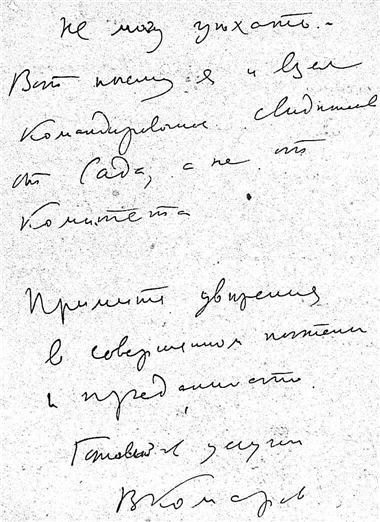 не могу уехать..
Вот почему я и взял
командировочное свидетельс
от Сада, а не от
Комитета
Примите уверения
в совершенном почтении
и преданности.
Готовый к услугам
ВКомаров